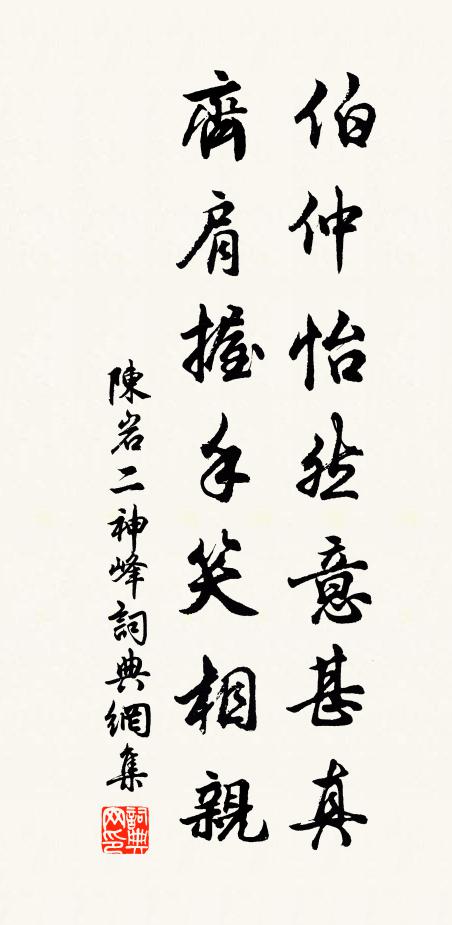 伯仲怡然意甚真
齊肩握手笑相親
陳岩二神峰詞典網集
詞典网印